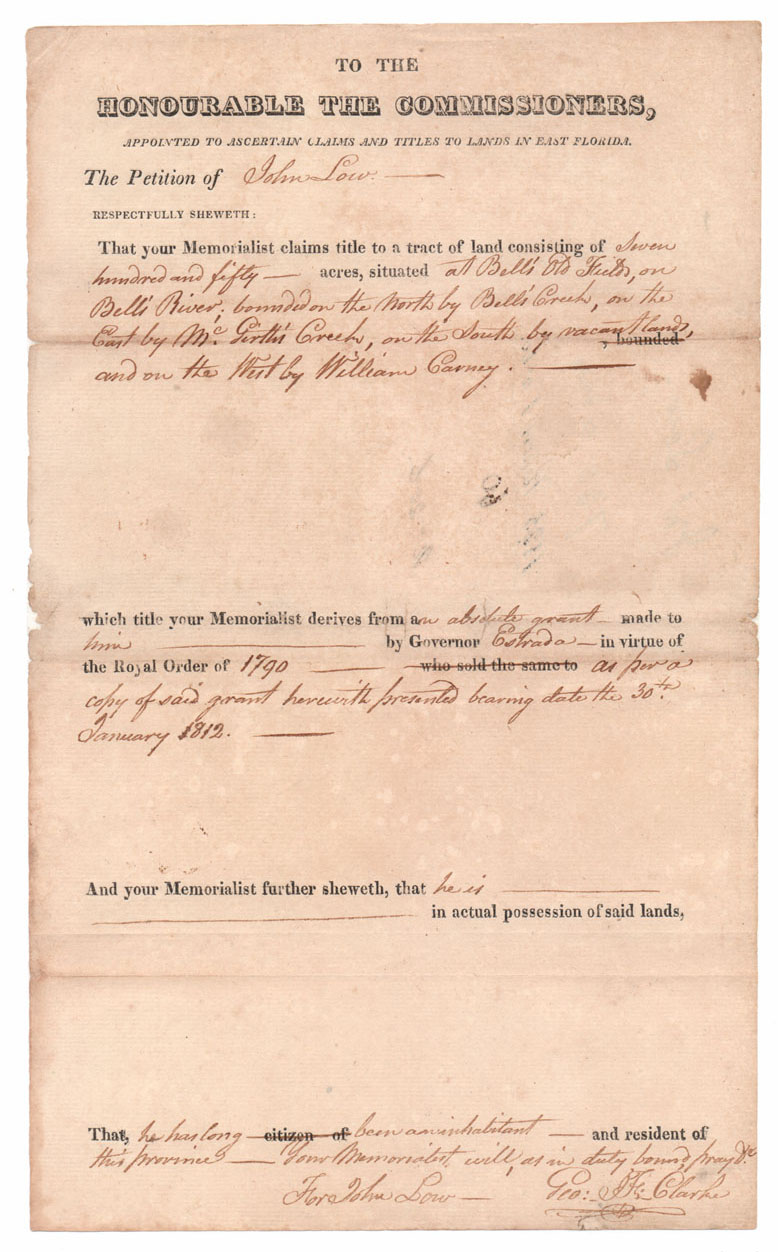 TO THE
HONOURABLE THE COMMISSIONERS,
APPOINTED TO ASCERTAIN CLAIMS AND TITLES TO LANDS IN EAST FLORIDA.
The Petition of John Low.
RESPECTFULLY SHEWETH:
That your Memorialist claims title to a tract of land consisting of Seven
hundred and fifty — acres, situated at Bell's Old Fields, on
Bell's River; bounded on the North by Bell's Creek, on the
East by Mc. Girth's Creek, on the South by vacant lands, , bounded
and on the West by William Carney.
which title your Memorialist derives from an absolute grant — made to
him — by Governor Estrada — in virtue of
the Royal Order of 1790 — who sold the same to as per a
copy of said grant herewith presented bearing date the 30th
January 1812. —
And your Memorialist further sheweth, that he is —
— in actual possession of said lands,
That, he has long citizen of been an inhabitant — and resident of
this province — Your Memorialist, will, as in duty bound, pray &c.
For John Low — Geo: J. F. Clarke